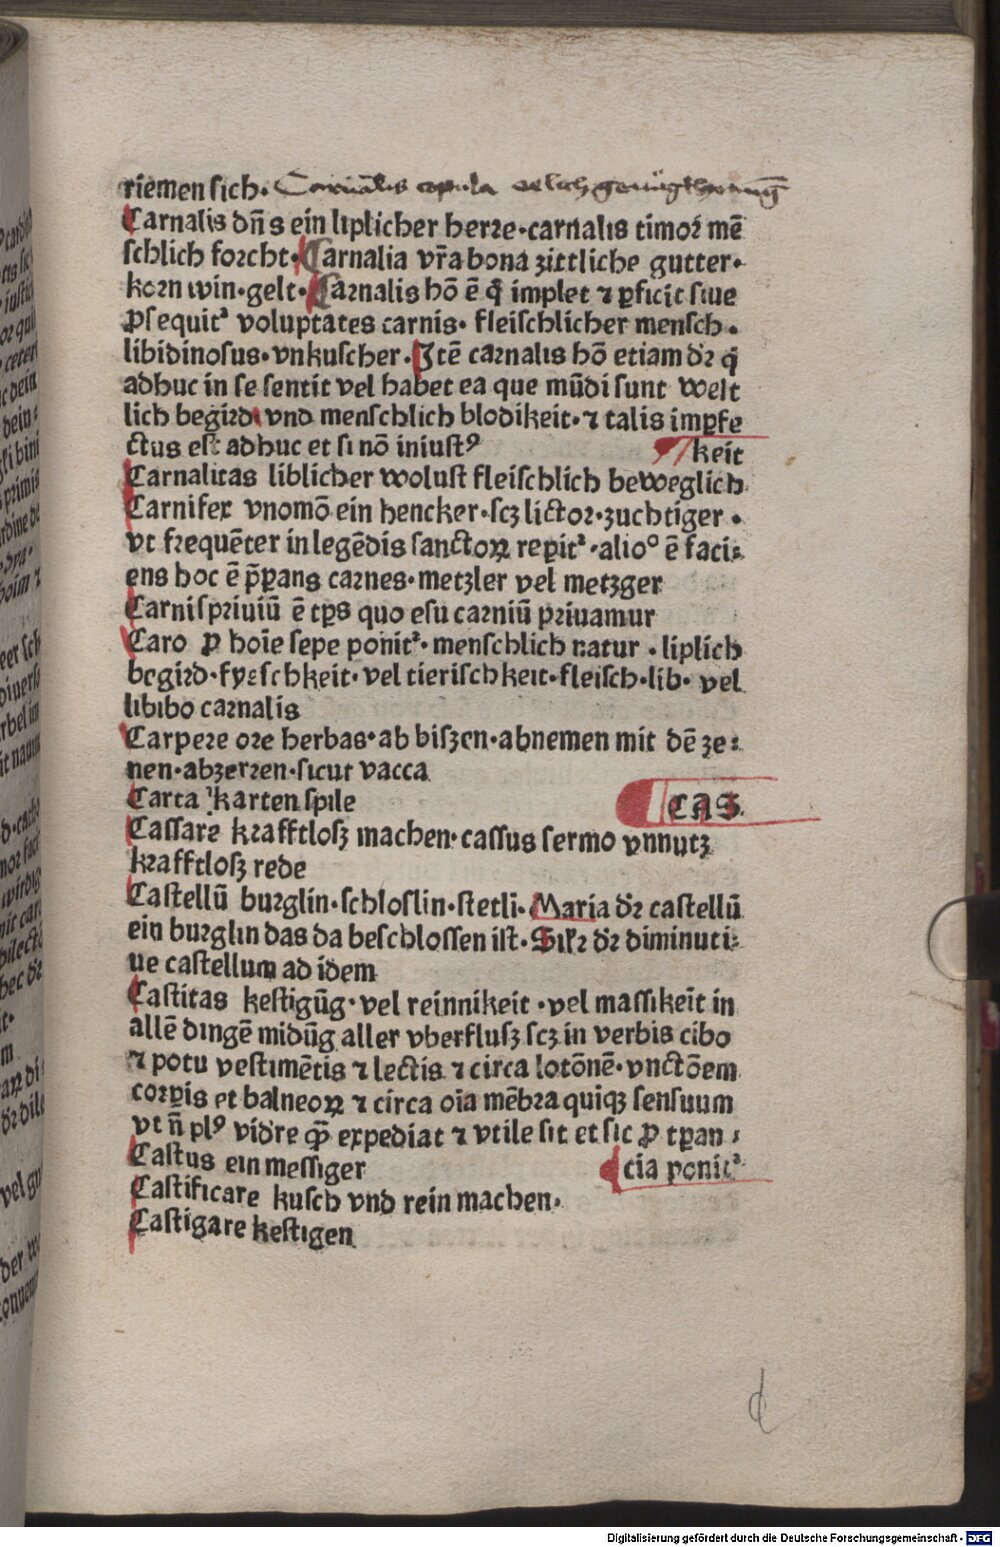 riemen sich. Carnalis copula
Carnalis dn̄s ein liplicher herre·carnalis timor mē
schlich forcht·Carnalia vr̄a bona zittliche gutter·
korn win·gelt·Carnalis hō ē q̄ implet ⁊ ꝑficit siue
ꝓsequit᷑ voluptates carnis· fleischlicher mensch·
libidinosus·vnkuscher·Itē carnalis hō etiam dr̄ q̄
adhuc in se sentit vel habet ea que mūdi sunt welt
lich begird vnd menschlich blodikeit·⁊ talis imꝑfe
ctus est adhuc et si nō iniustꝰ keit
Carnalitas liblicher wolust fleischlich beweglich
Carnifex vnomō ein hencker·scz lictor·zuchtiger·
vt frequēter in legēdis sanctoꝝ reꝑit᷑·alio° ē faci⸗
ens hoc ē p̄ꝑans carnes·metzler vel metzger
Carnispriuiū ē tꝑs quo esu carniū priuamur
Caro ꝓ hoīe sepe ponit᷑·menschlich natur·liplich
begird·fleischkeit·vel tierischkeit·fleisch·lib· vel
libibo carnalis
Carpere ore herbas·ab biszen·abnemen mit dē ze⸗
nen·abzerren·sicut vacca
Carta karten spile CAS.
Cassare krafftlosz machen·cassus sermo vnnutz
krafftlosz rede
Castellū burglin·schloslin·stetli·Maria dr̄ castellū
ein burglin das da beschlossen ist·Sikr̄ dr̄ diminuti⸗
ue castellum ad idem
Castitas kestigūg·vel reinnikeit·vel massikeit in
allē dingē midūg aller vberflusz scz in verbis cibo
⁊ potu vestimētis ⁊ lectis ⁊ circa lotōnē·vnctōem
corꝑis et balneoꝝ ⁊ circa oīa mēbra quiqꝫ sensuum
vt n̄ plꝰ vidre qꝫ̄ expediat ⁊ vtile sit et sic ꝓ tꝑan⸗
Castus ein messiger cia ponit᷑
Castificare kusch vnd rein machen·
Castigare kestigen
Digitalisierung gefördert durch die Deutsche Forschungsgemeinschaft - DFG